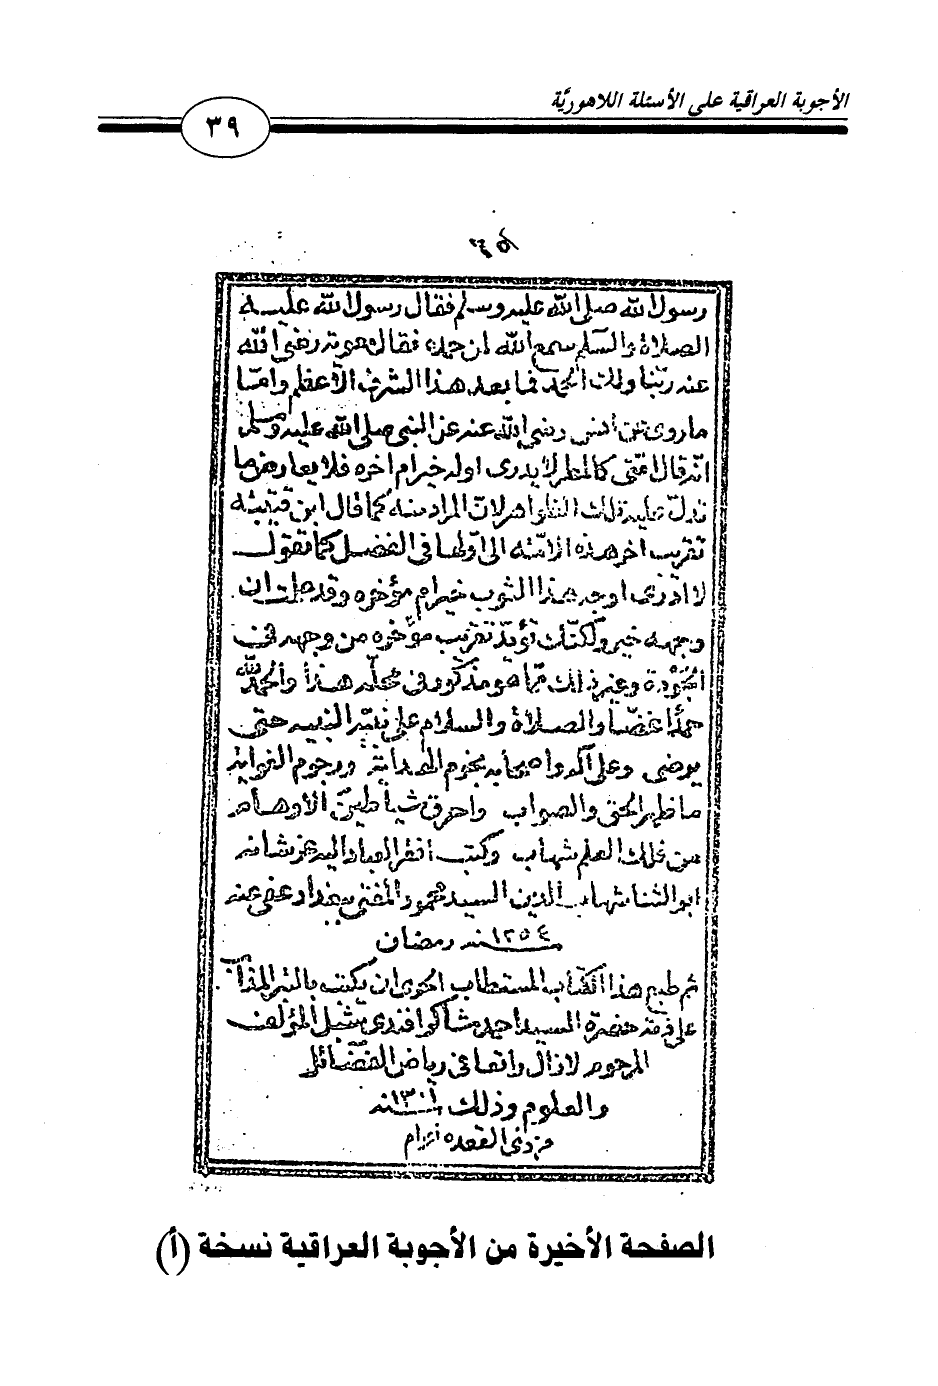 الأجوبة العراقية على الأسئلة اللاهوريّة
٣٩
رسول الله صلى الله عليه وسلم فقال رسول الله عليه
الصلاة والسلام سمع الله لمن حمده فقال معوية رضي الله
عنه ربنا ولك الحمد فما بعد هذا الشرف الأعظم وامّا
ما روى عن أنس رضي الله عنه عن النبي صلى الله عليه وسلم
انه قال امّتى كالمطر لا يدرى اوله خير ام اخره فلا يعارض ما
تدلّ عليه تلك الظواهر لانّ المراد منه كما قال ابن قتيبة
تقريب اخر هذه الامّة الى اوّلها فى الفضل كما تقول
لا ادرى اوجه هذا الثوب خير ام مؤخره وقد علمت ان
وجهه خير ولكنّك تريد تقريب مؤخره من وجهه فى
الجَوْدة وغير ذلك ممّا هو مذكور فى محلّه هذا والحمد لله
حمدًا غضّا والصلاة والسلام على نبيّه النبيه حتى
يرضى وعلى آله واصحابه نجوم الهداية ورجوم الغواية
ما ظهر الحق والصواب واحرق شياطين الأوهام
من فلك العلم شهاب وكتب افقر العباد اليه عز شانه
ابو الثنا شهاب الدين السيد محمود المفتى ببغداد عفى عنه
١٢٥٤ سنه رمضان
ثم طبع هذا الكتاب المستطاب الحرى ان يكتب بالتبر المذاب
على ذمة حضرة السيد احمد شاكر افندى شبل المؤلف
المرحوم لا زال راتعا فى رياض الفضائل
والعلوم وذلك ١٣٠١ سنه
ذى القعده
الصفحة الأخيرة من الأجوبة العراقية نسخة (أ)